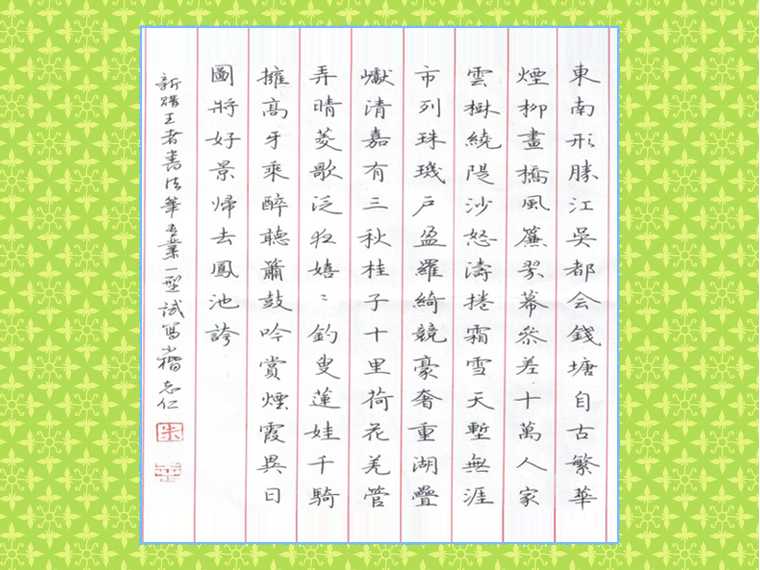 東南形勝江吳都会錢塘自古繁華
煙柳畫橋風簾翠幕參差十萬人家
雲樹繞隄沙怒濤捲霜雪天塹無涯
市列珠璣戶盈羅綺競豪奢重湖疊
巘清嘉有三秋桂子十里荷花羌管
弄晴菱歌泛夜嬉〻釣叟蓮娃千騎
擁高牙乘醉聽簫鼓吟賞煙霞異日
圖將好景歸去鳳池誇
新購王者書法筆专業一型試写小楷志仁
朱